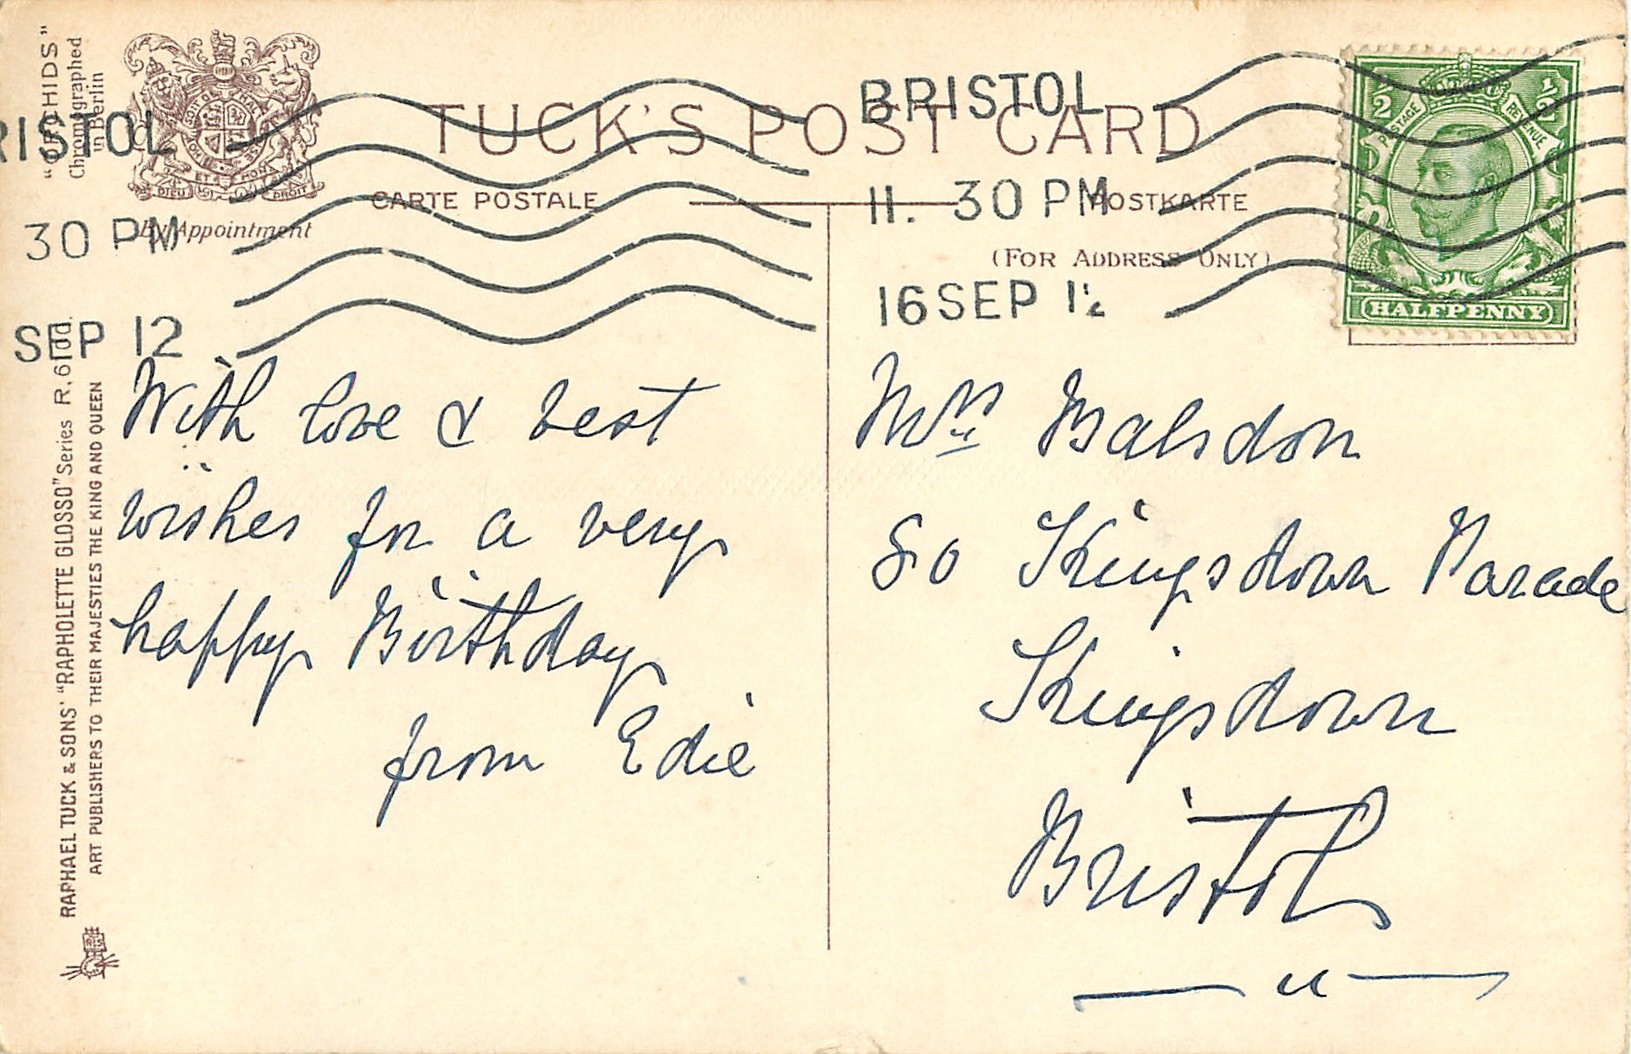 "ORCHIDS"
Chromographed
in Berlin
By Appointment
TUCK'S POST CARD
CARTE POSTALE
POSTKARTE
(FOR ADDRESS ONLY)
BRISTOL
11. 30 PM
16 SEP 12
RISTOL
30 PM
SEP 12
POSTAGE
REVENUE
1/2
1/2
HALFPENNY
ET
MON
DIEU
DROIT
RAPHAEL TUCK & SONS' "RAPHOLETTE GLOSSO" Series R.
ART PUBLISHERS TO THEIR MAJESTIES THE KING AND QUEEN
With love & best
wishes for a very
happy Birthday
from Edie
Mrs Balsdon
80 Kingsdown Parade
Kingsdown
Bristol